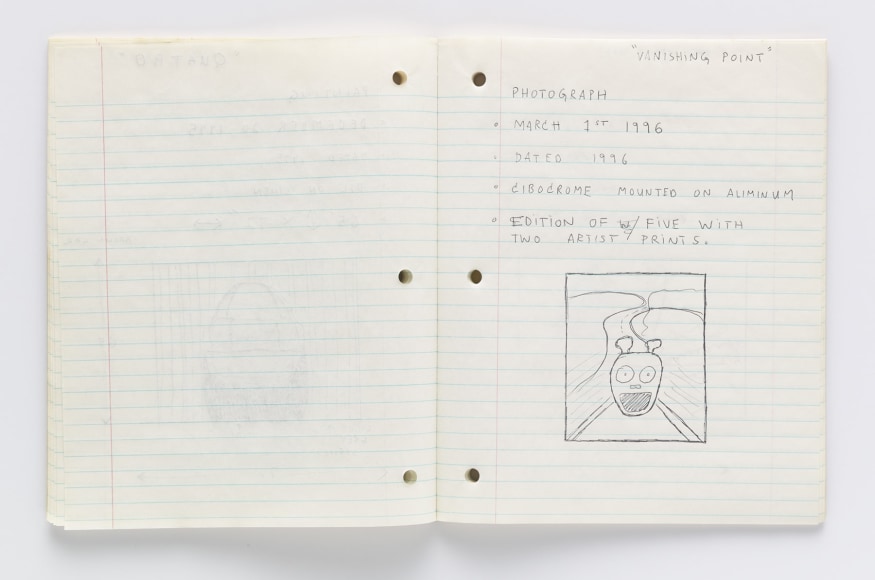 "VANISHING POINT"
PHOTOGRAPH
• MARCH 1ST 1996
• DATED 1996
• CIBOCROME MOUNTED ON ALIMINUM
• EDITION OF FIVE WITH
TWO ARTIST PRINTS.